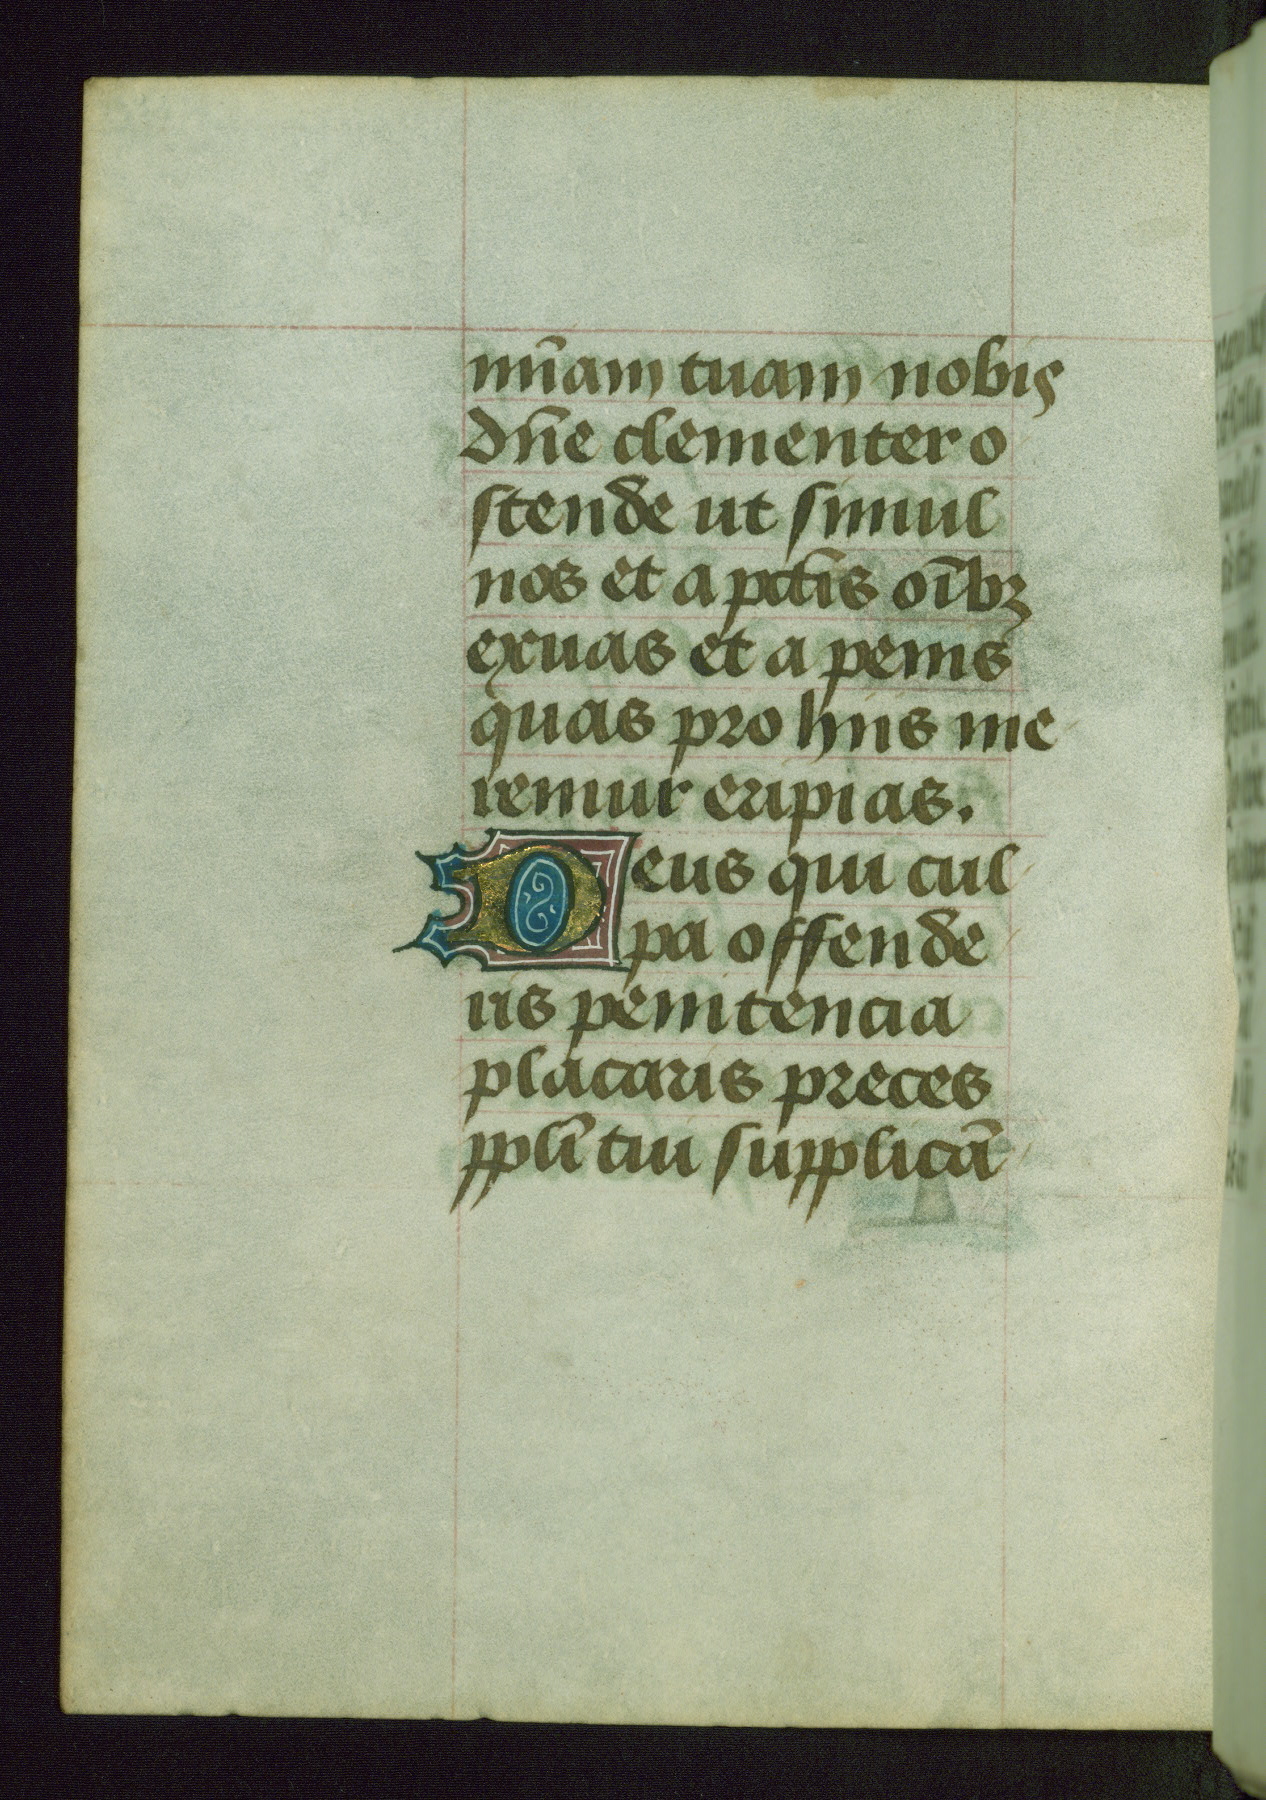 mīam tuam nobis
dn̄e clementer o
stende ut simul
nos et a pctīs oībꝫ
exuas et a penis
quas pro hiis me
remur eripias.
Deus qui cul
pa offende
ris penitencia
placaris preces
ppli̅ tui supplicā